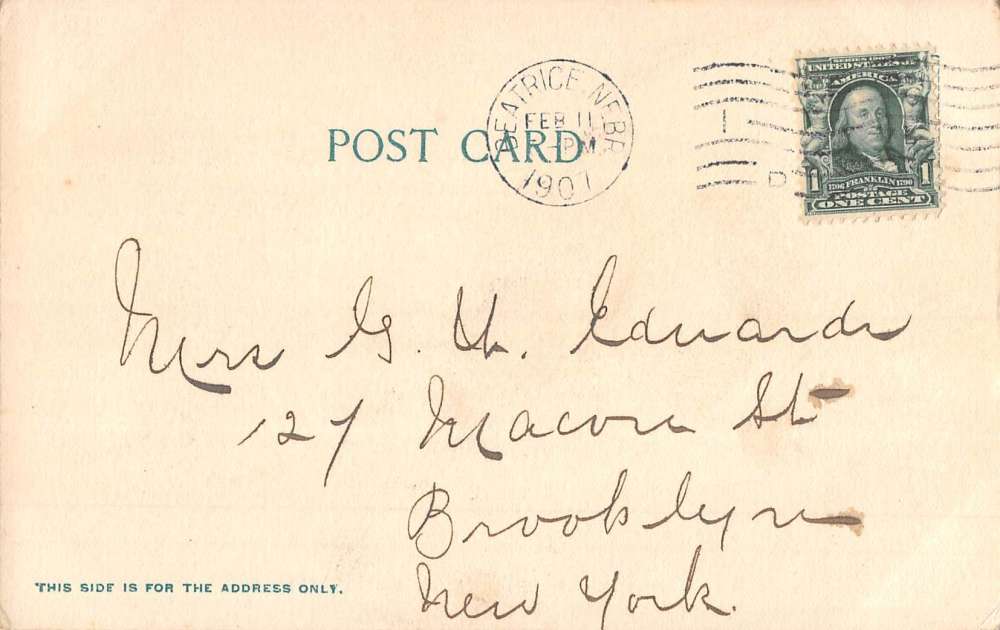 POST CARD
BEATRICE NEBR.
FEB 11
-PM
1907
D
SERIES 1902
UNITED STATES OF
AMERICA
1 1706 FRANKLIN 1790 1
POSTAGE
ONE CENT
Mrs G. H. Edwards
127 Macon St
Brooklyn
New York.
THIS SIDE IS FOR THE ADDRESS ONLY.